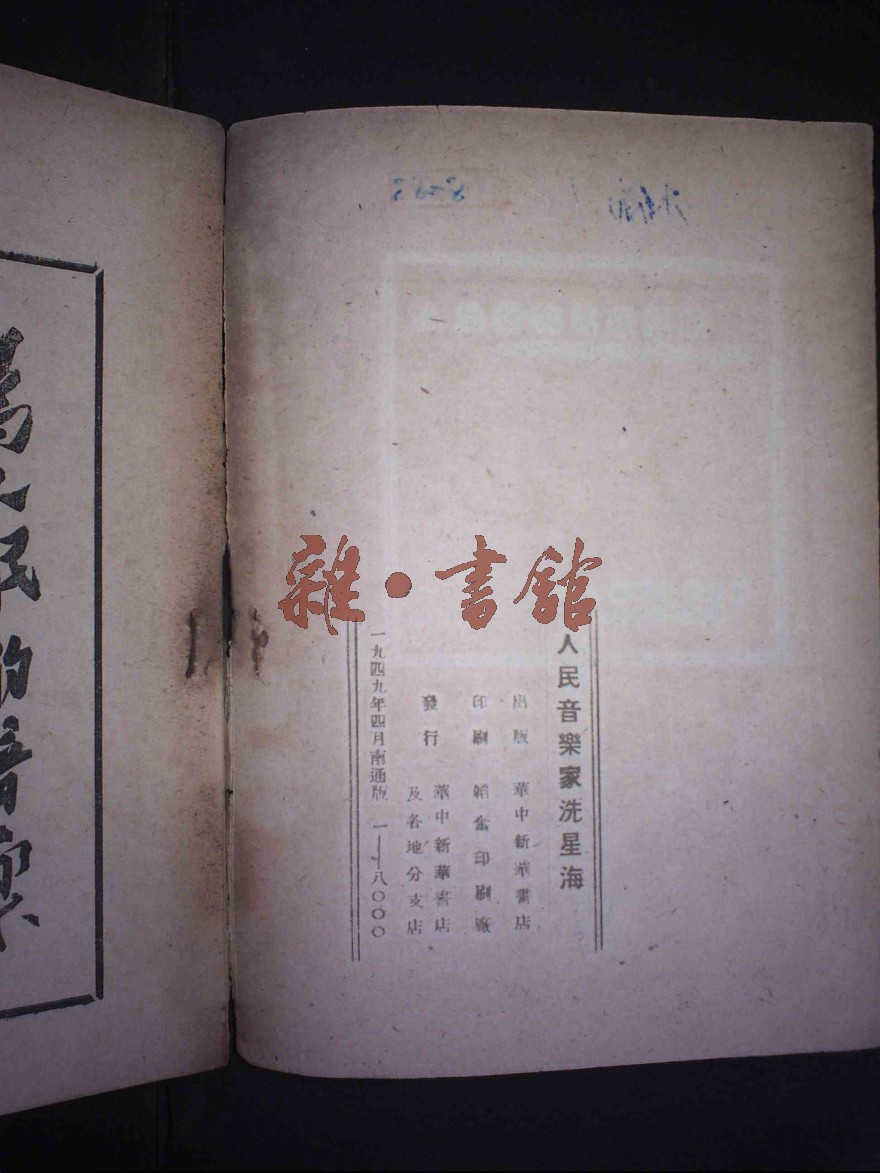 人民音樂家洗星海
出版 華中新華書店
印刷 韜奮印刷廠
發行 華中新華書店
及各地分支店
一九四九年四月南通版 一——八〇〇〇
為人民的音樂
雜·書館